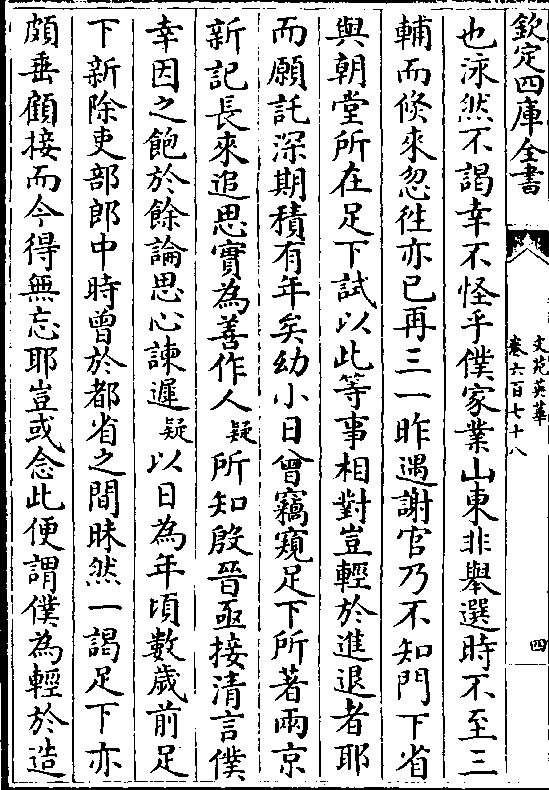 欽定四庫全書
文苑英華
卷六百七十八
四
也泳然不謁幸不怪乎僕家業山東非舉選時不至三
輔而倏來忽徃亦已再三一昨遇謝官乃不知門下省
與朝堂所在足下試以此等事相對豈輕於進退者耶
而願託深期積有年矣幼小日曾竊窺足下所著兩京
新記長來追思實為善作人疑所知殷晉亟接清言僕
幸因之飽於餘論思心諫遲疑以日為年頃數歲前足
下新除吏部郎中時曾於都省之間昧然一謁足下亦
頗垂顧接而今得無忘耶豈或念此便謂僕為輕於造